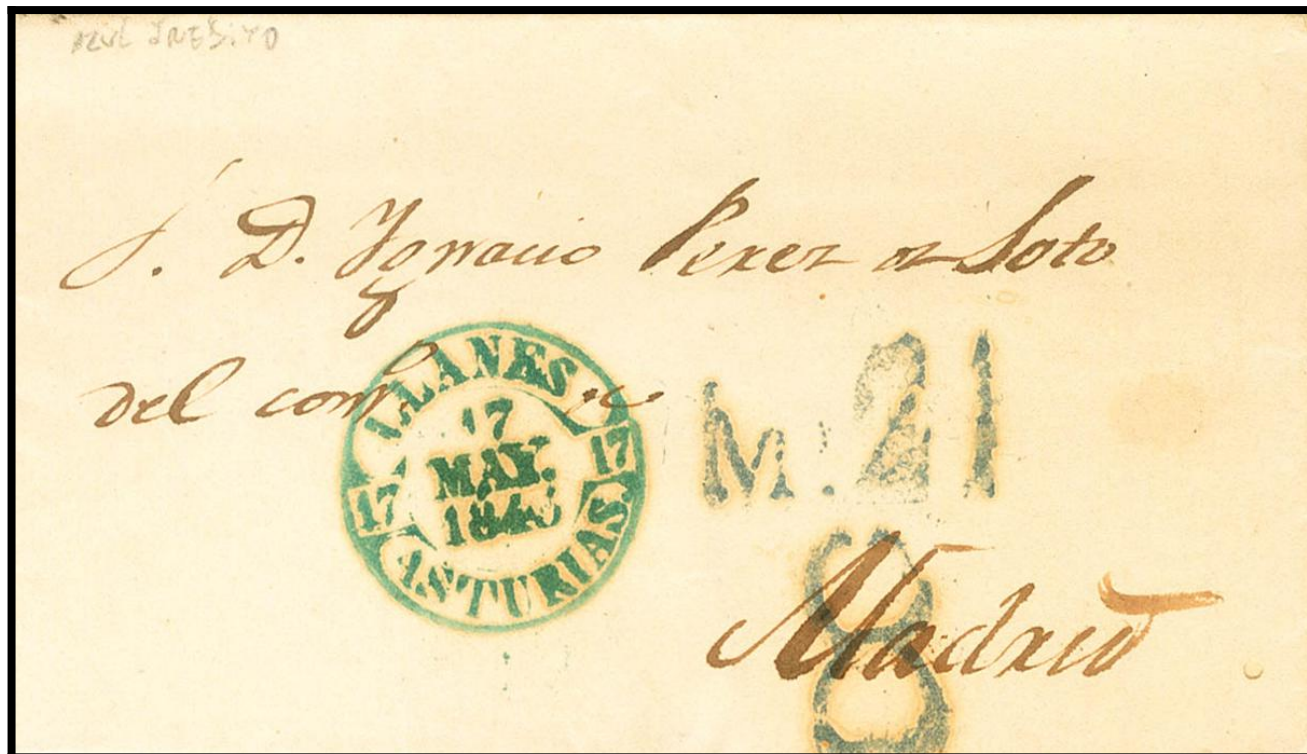 AZUL INEDITO
S. D. Ygnacio Perez de Soto
del com.º &c
LLANES
17
MAY.
1845
17
17
ASTURIAS.
M. 21
8
Madrid